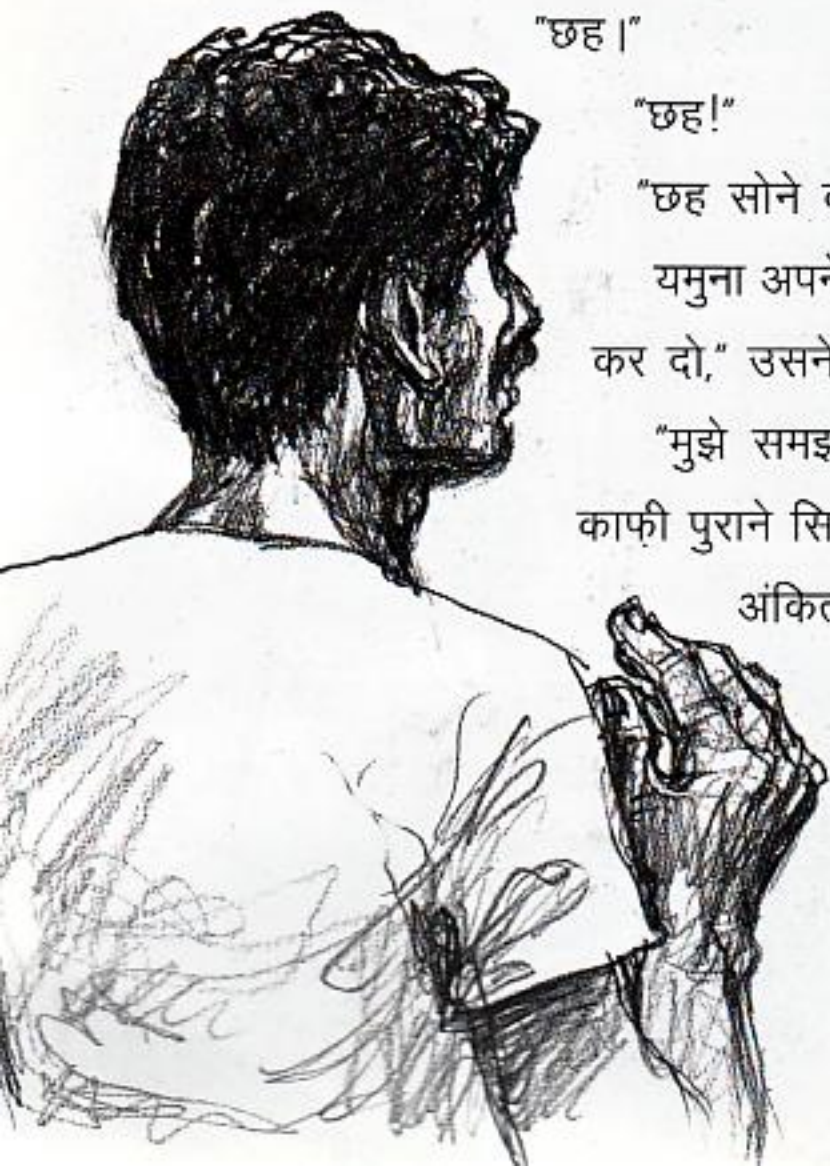 "छह।"
"छह!"
"छह सोने
यमुना अपने
कर दो," उसने
"मुझे समझ
काफी पुराने सि
अंकित